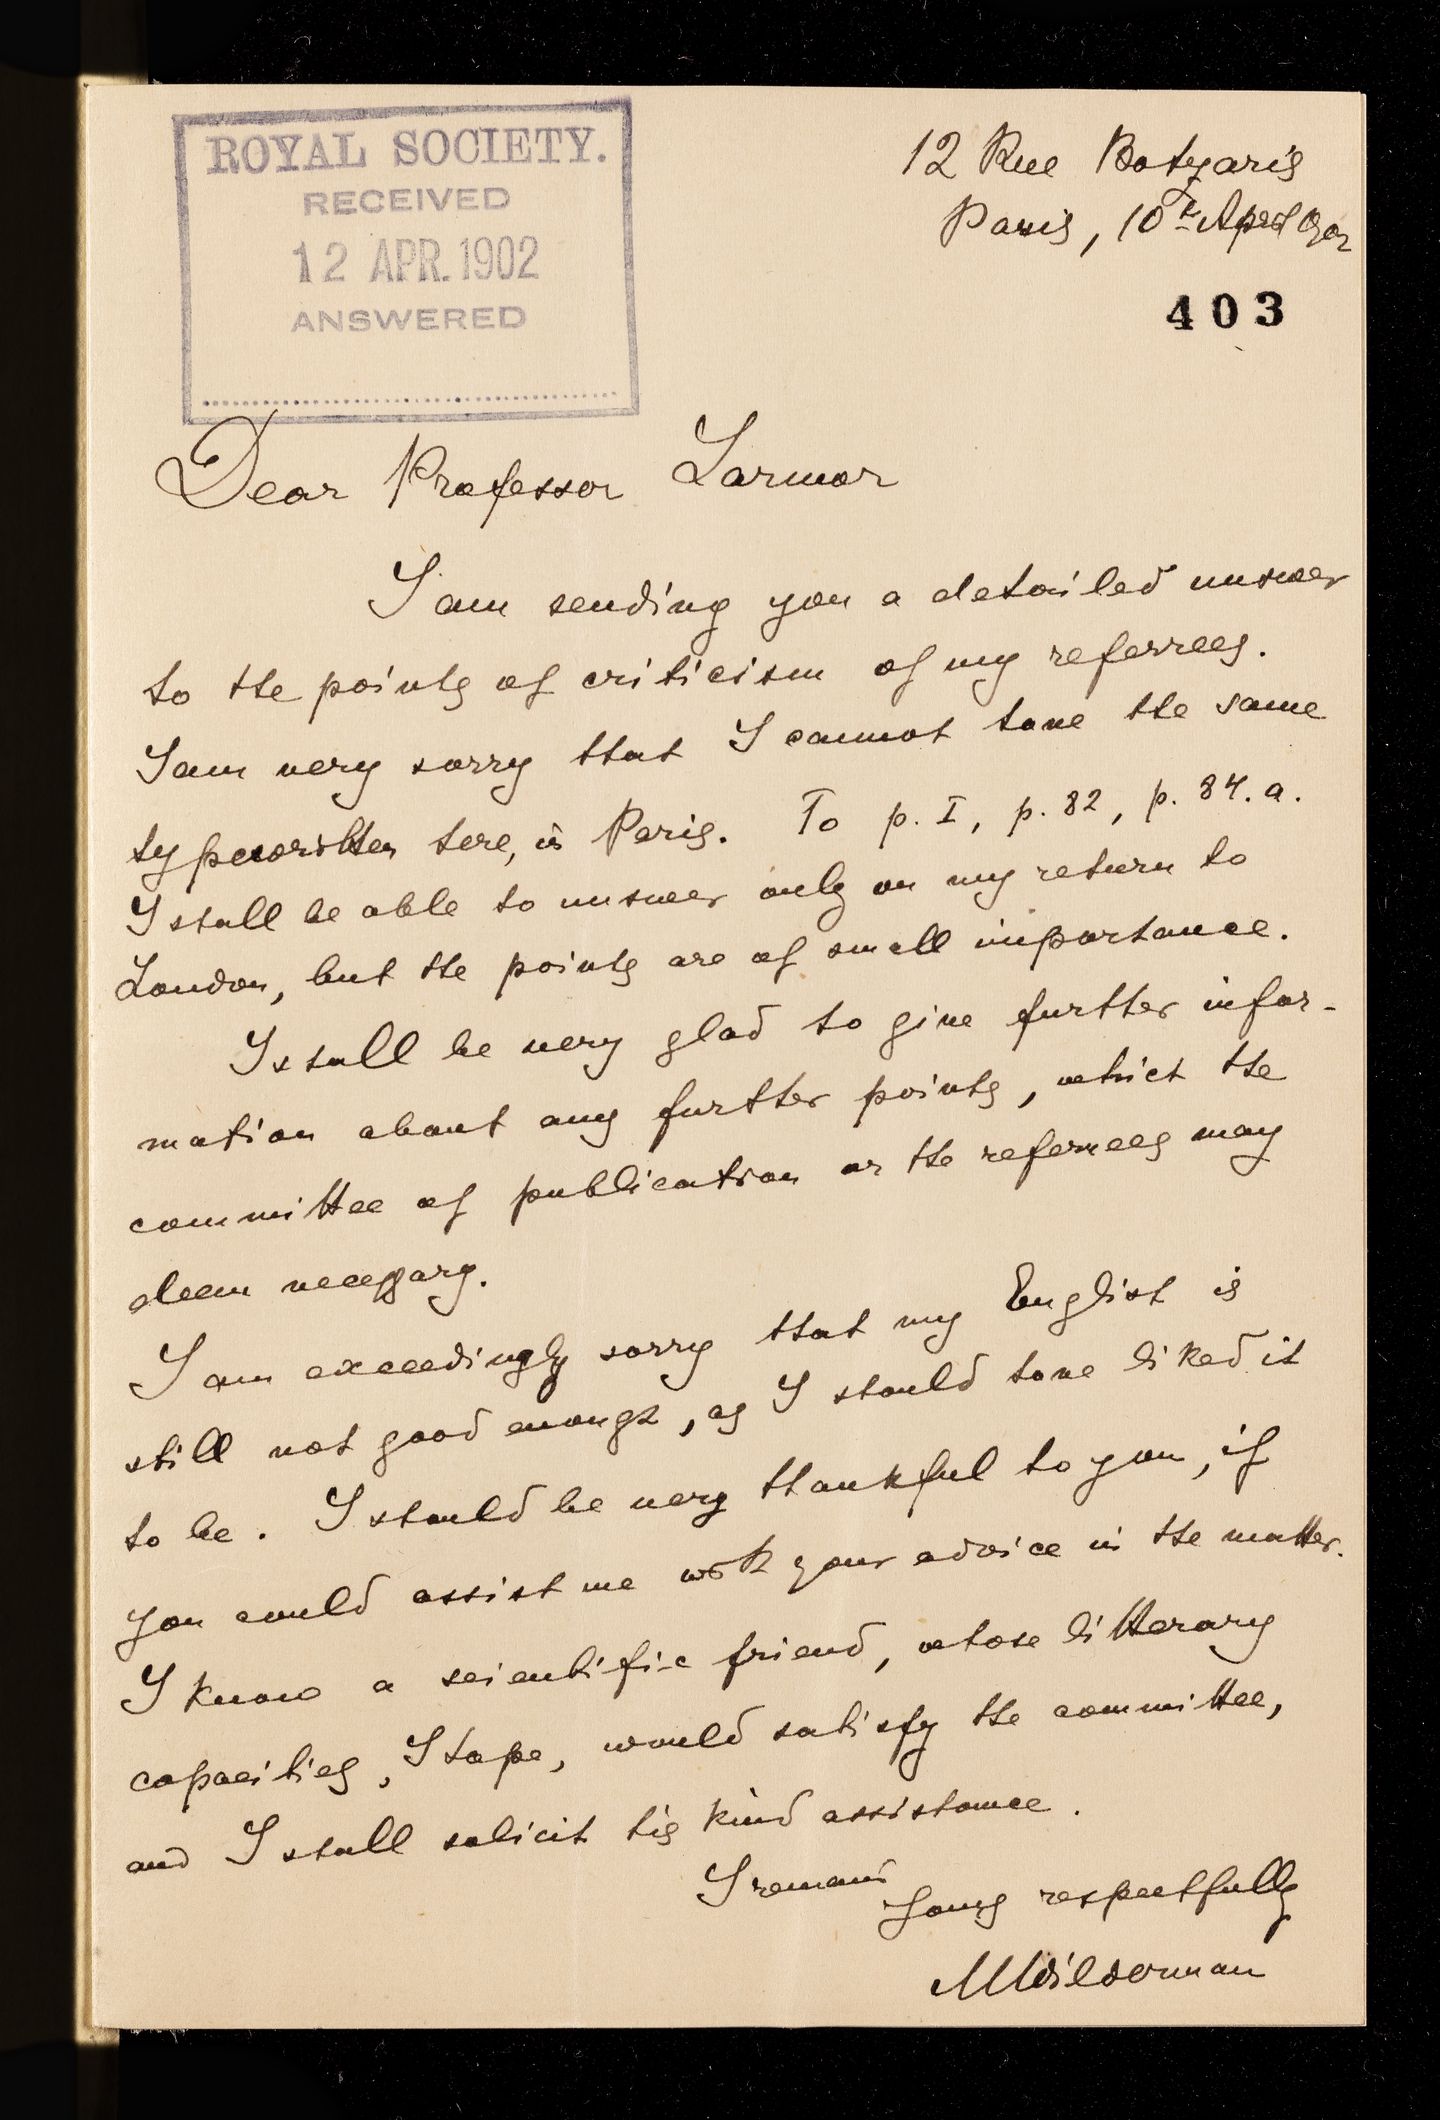 ROYAL SOCIETY.
RECEIVED
12 APR. 1902
ANSWERED
12 Rue Botzaris
Paris, 10th April 902
403
Dear Professor Larmor
I am sending you a detailed answer
to the points of criticism of my referrees.
I am very sorry that I cannot have the same
typewritten here, in Paris. To p. I, p. 82, p. 84. a.
I shall be able to answer only on my return to
London, but the points are of small importance.
I shall be very glad to give further infor-
mation about any further points, which the
committee of publication or the referrees may
deem necessary.
I am exceedingly sorry that my English is
still not good enough, as I should have liked it
to be. I should be very thankful to you, if
you could assist me with your advice in the matter.
I know a scientific friend, whose litterary
capacities, I hope, would satisfy the committee,
and I shall solicit his kind assistance.
I remain
Yours respectfully
M Wilderman